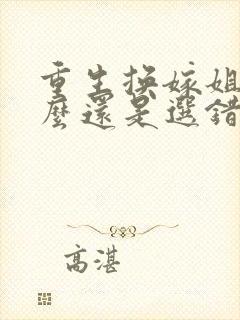 重生換嫁姐
麼還是選錯
高湛